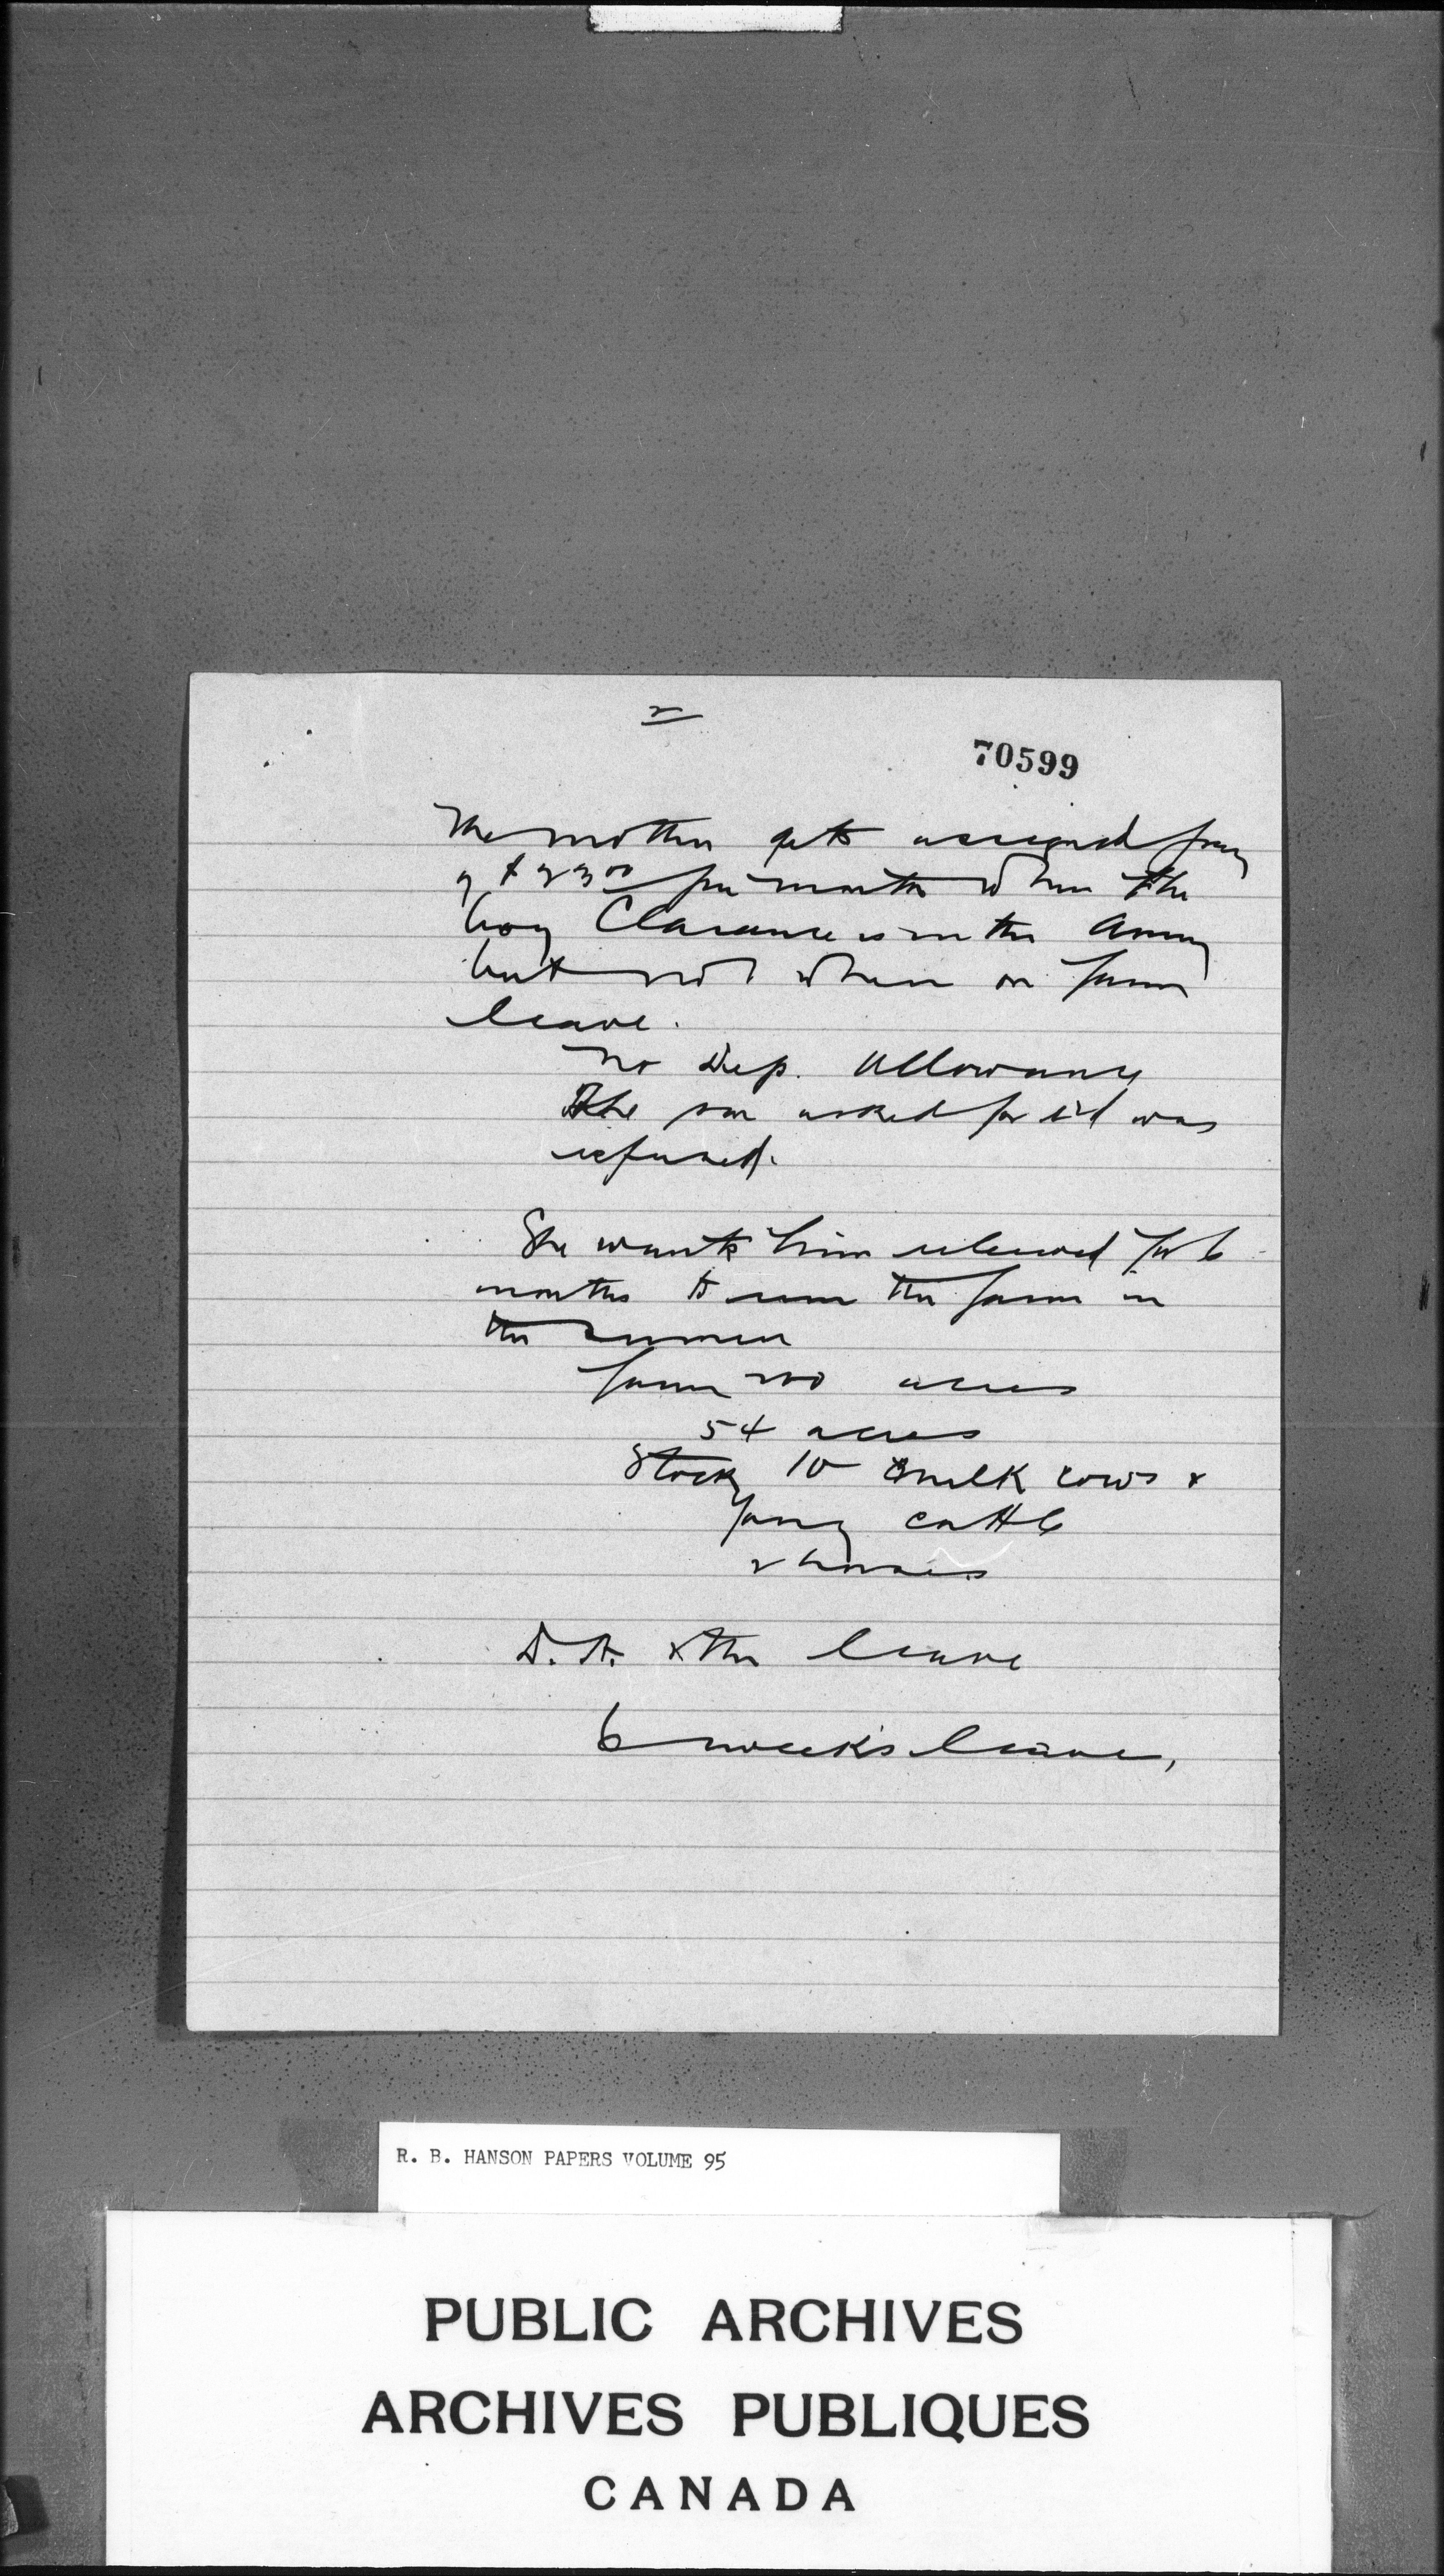 2
70599
The mother gets assigned pay
of $23.00 per month when the
boy Clarence is in the Army
but not when on farm
leave.
No Dep. Allowance
The son asked for it & was
refused.
She wants him released for 6
months to run the farm in
the summer
farm 200 acres
54 acres
Stock 10 milk cows &
young cattle
2 horses
D. A. & the leave
6 weeks leave,
R. B. HANSON PAPERS VOLUME 95
PUBLIC ARCHIVES
ARCHIVES PUBLIQUES
CANADA